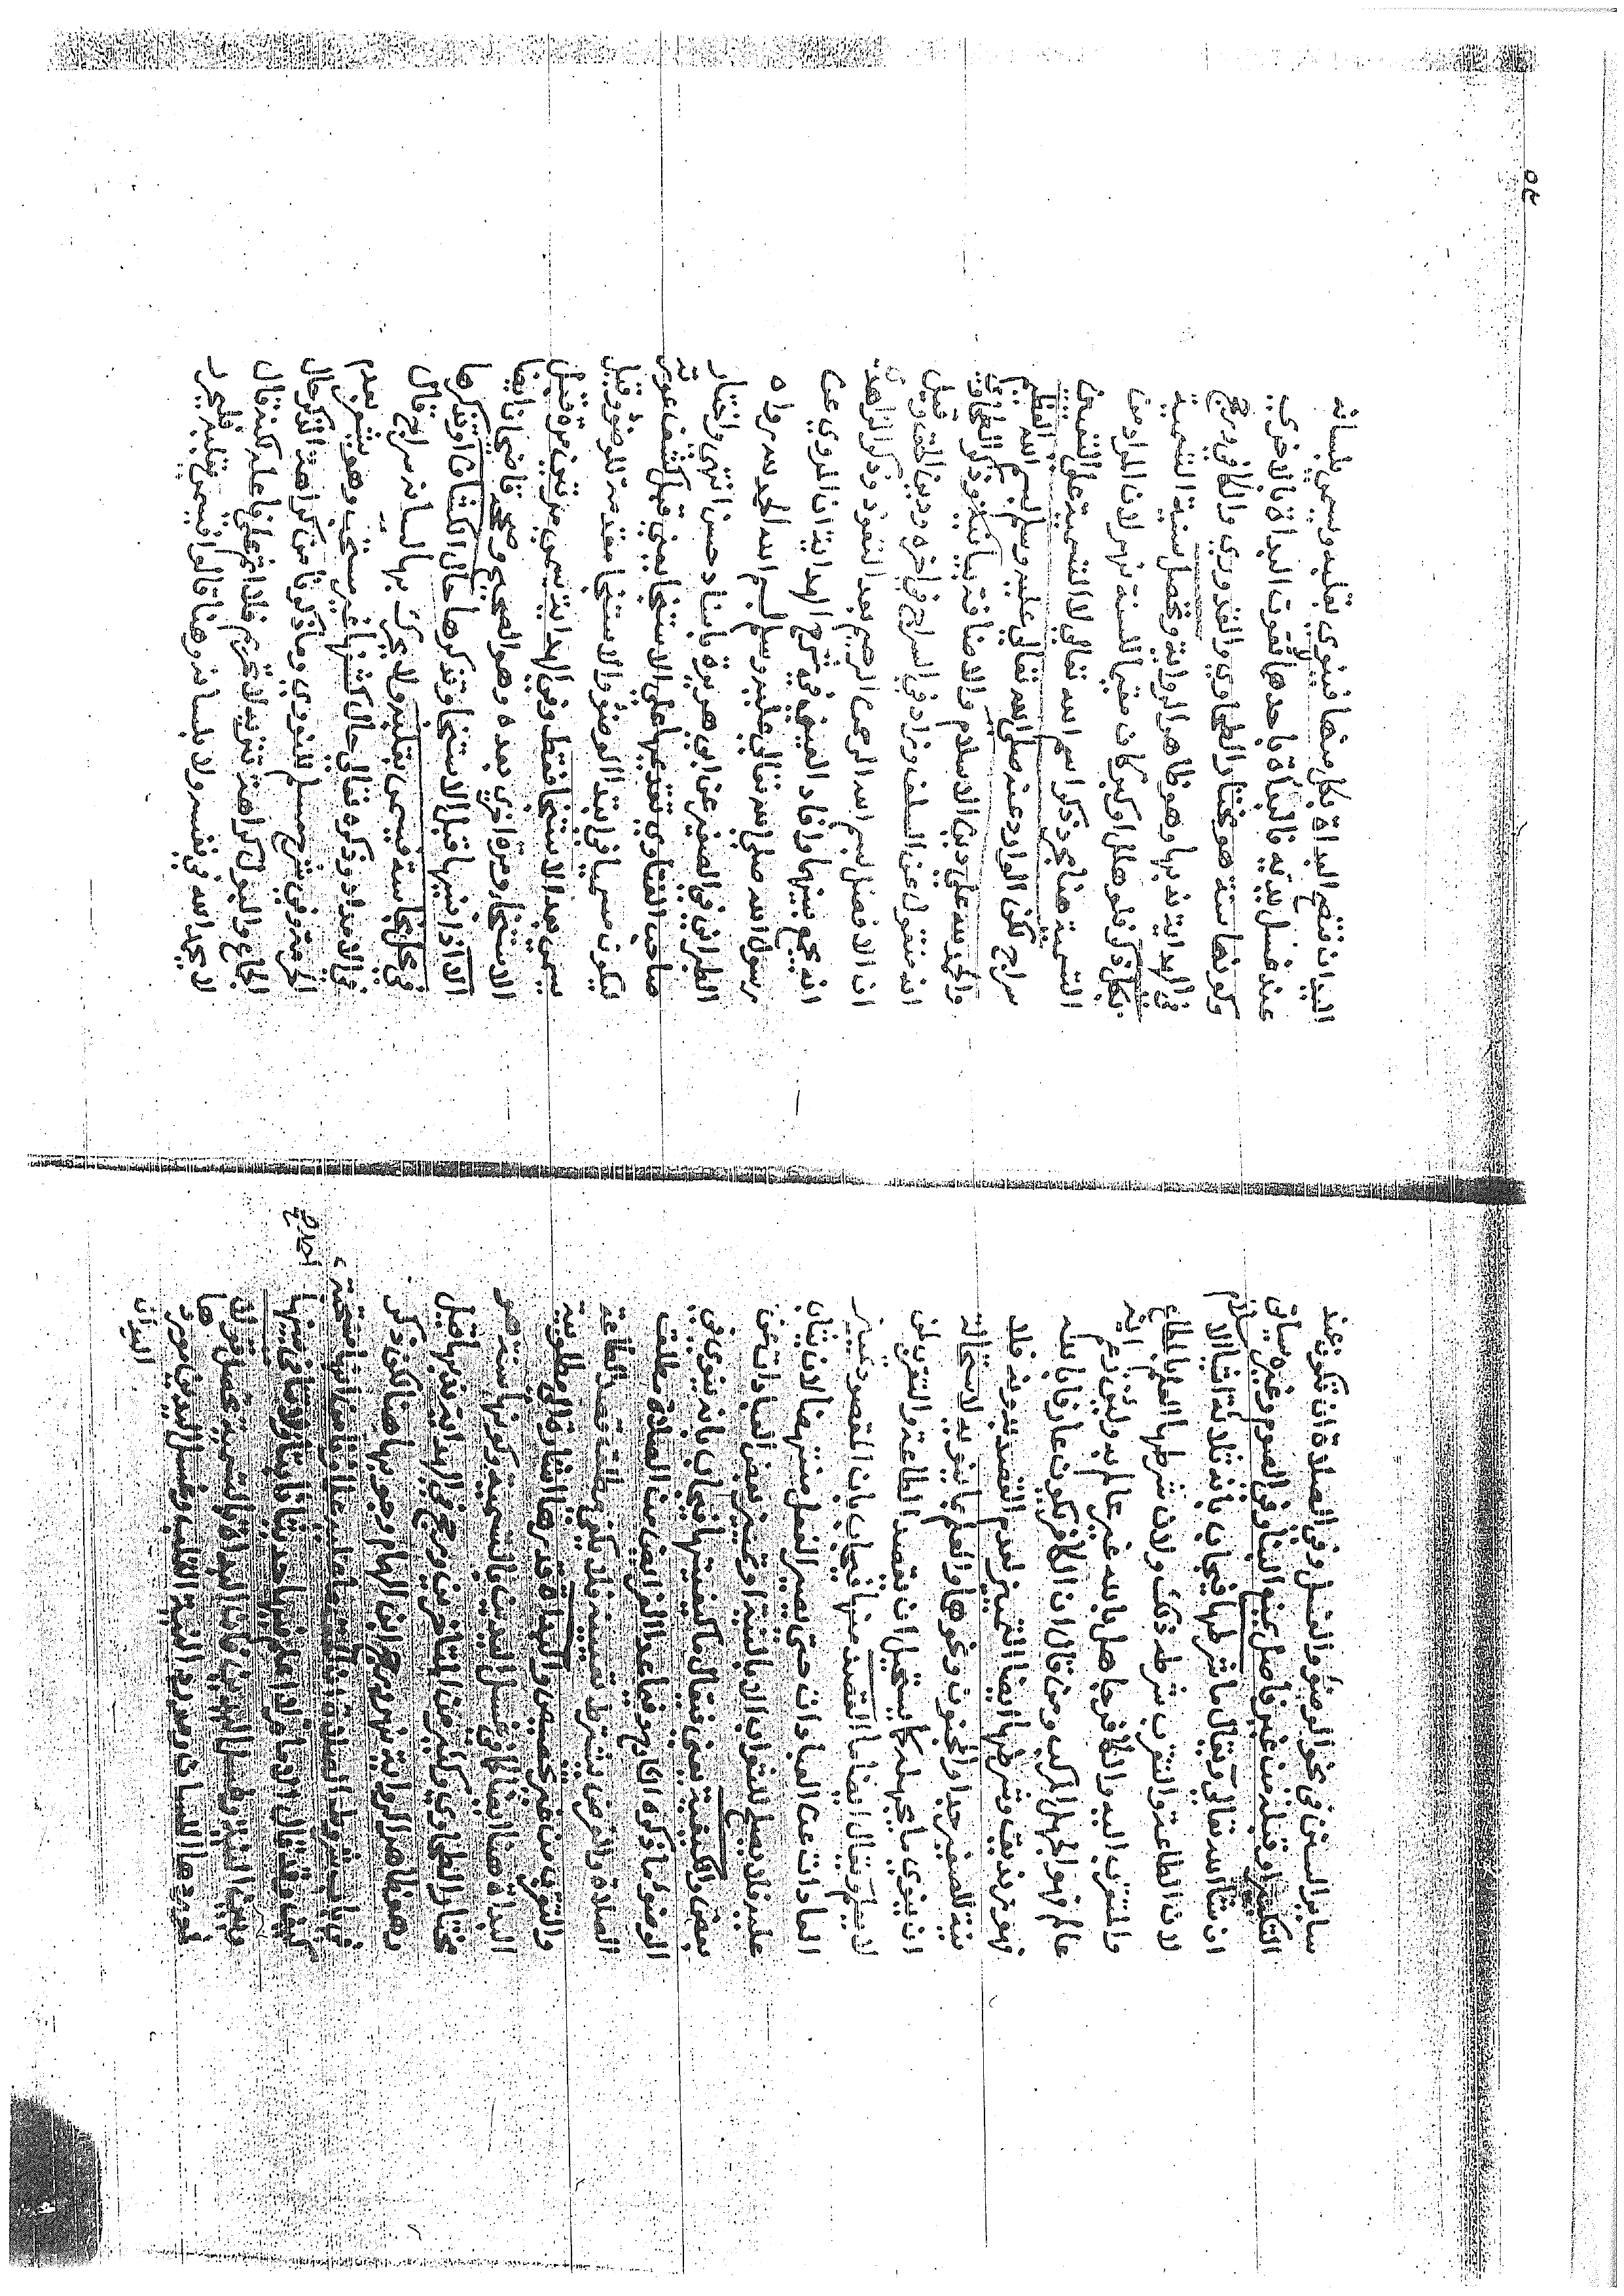 ساير السنن في نحو الوضوء والغسل وفي الصلاة ان تكون عند
التكبير او قبله من غير فاصل يمنع البناء وفي الصوم وغيره سياتي
ان شا الله تعالى ويقال ما شرطها فيجاب بانه ثلاثة اشيا الاسلام
لان الطاعة والتقرب شرطه ذلك ولان شرطها العلم بالمطاع
والمتقرب اليه والكافر جاهل بالله غير عالم به ولئن زعم انه
عالم فهو الجهل المركب ومن قال ان الكافر يكون عارفا بالله
فهو زنديق وشرطها ايضا التمييز لعدم القصد بدونه فلا
نية للصغير جدا والمجنون ونحوها والعلم بما ينويه لاستحالة
ان ينوي ما يجهله كما يستحيل ان يقصد الطاعة والتقرب لمن
لا يعلم ويقال ايضا ما القصد منها فيجاب بان المقصود تمييز
العادات عن العبادات حتى يصير الفعل منتهضا لان يثاب
عليه فلا يصلح للثواب الا بالنية او تمييز بعض العبادات عن
بعض والكيفية يعني فيقال ما كيفيتها فيجاب بانه ينوي في
الوضوء ما ذكره فيما عدا الفرايض من الصلاة مطلق
الصلاة والفرض يشترط تعيينه فلا يكفي مطلق قصد الطاعة
والتقرب من غير تخصيص والبداة قدرها اشارة الى مطلوبية
البداة هنا ايضا كما في غسل اليدين بالتسمية وكونها سنة هو
مختار الطحاوي وكثير من المتاخرين ورجح في الهداية ندبها قيل
وهو ظاهر الرواية نهر ورجح ابن الهمام وجوبها هنا لكن ذكر
في باب شروط الصلاة
كيف وقد قال الامام احمد لا اعلم فيها حديثا ثابتا
بين النية وغسل اليدين فان البداة بالتسمية تحصل قولا
النية القلب وغسل اليدين موردها
اليدان
٥٢
اليدان فتصح البداة بكل منها فينوي بقلبه ويسمي بلسانه
عند غسل يديه فالبداة باحدها لا يفوت البداة بالاخرى
وكونها سنة هو مختار الطحاوي والقدوري والكافي ورجح
في الهداية ندبها وهو ظاهر الرواية وتحصل سنية التسمية
بكل ذكر فلو هلل او كبر كان مقيما للسنة نهر لان المراد من
التسمية هنا مجرد ذكر اسم الله تعالى لا التسمية على التعيين
سراج لكن الوارد عنه صلى الله تعالى عليه وسلم بسم الله العظيم
والحمد لله على دين الاسلام والاضافة بيانية وذكر الطحاوي
انه منقول عن السلف وزاد في السراج في اخره ودين الحق وقيل
ان الافضل بسم الله الرحمن الرحيم بعد التعوذ وذكر الزاهدي
انه يجمع بينهما وافاد العيني في شرح الهداية ان المروي عن
رسول الله صلى الله تعالى عليه وسلم بسم الله الحمد لله رواه
الطبراني في الصغير عن ابي هريرة باسناد حسن انتهى واختار
صاحب الفتاوى تقديمها على الاستنجا يعني قبل كشف عورته
ليكون مسميا في ابتدا الوضوء والاستنجا مقدمة للوضوء وقيل
يسمي بعد الاستنجا فقط وفي الهداية يسمي مرتين مرة قبل
الاستنجا ومرة اخرى بعده وهو الصحيح وصححه قاضي خان ايضا
الا اذا نسيها قبل الاستنجا وتذكرها حال انكشاف او تذكرها
في محل نجاسة فيسمي بقلبه ولا يحرك بها لسانه سراج قال
في الامداد وذكره تعالى حال كشفها غير مستحب وهو يشعر بعدم
الحرمة وفي شرح مسلم للنووي وما ذكرناه من كراهة الذكر حال
الجماع والبول كراهة تنزيه لا تحريم فلا اثم على فاعله لكنه قال
لا يحمد الله في نفسه ولا بلسانه وهنا قالوا فيسمي بقلبه فليحرر